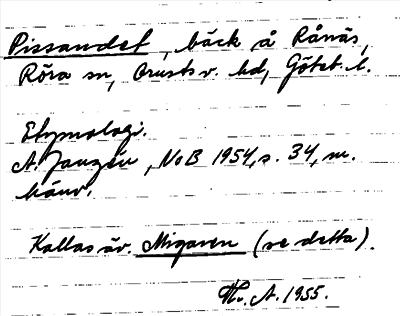 Pissandet, bäck å Rånäs,
Röra sn, Orusts v. hd, Göteb. l.
Etymologi.
A. Janzén, NoB 1954, s. 34, m.
hänv.
Kallas äv. Migaren (se detta).
A. 1955.